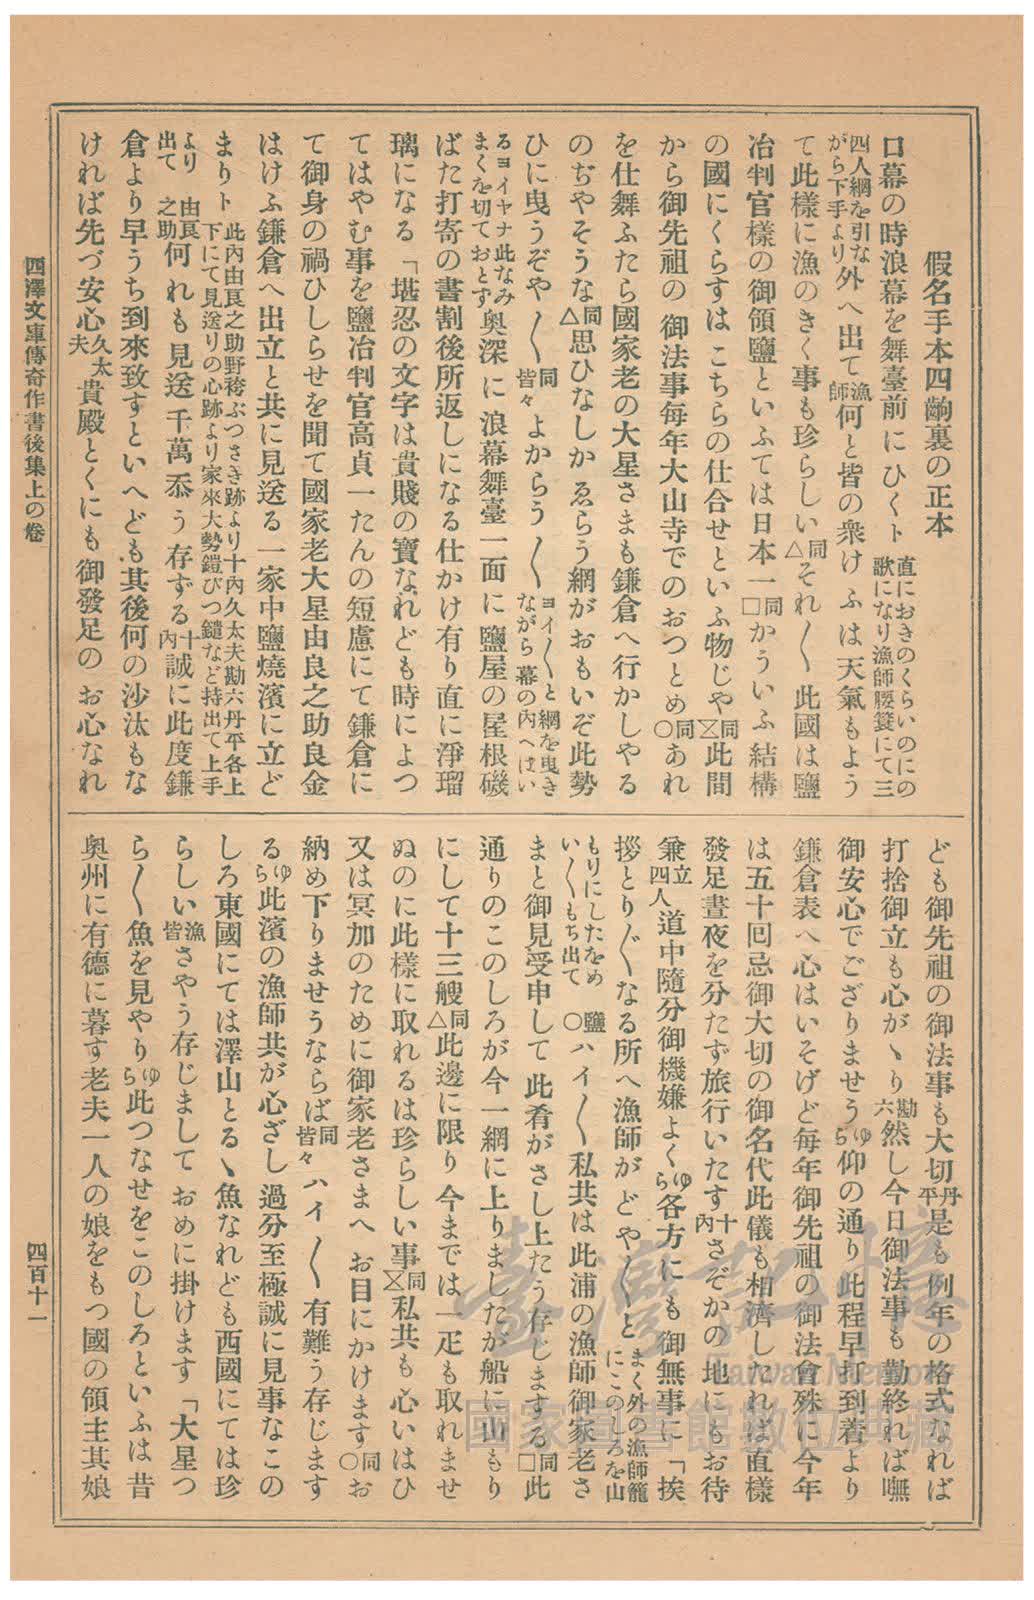 假名手本四齣裏の正本
口幕の時浪幕を舞臺前にひくト直におきのくらいのにの歌になり漁師腰簑にて三
四人網を引ながら下手より外へ出て漁師何と皆の衆けふは天氣もよう
て此樣に漁のきく事も珍らしい同△それ〱此國は鹽
冶判官樣の御領鹽といふては日本一同□かういふ結構
の國にくらすはこちらの仕合せといふ物じや同⧖此間
から御先祖の御法事每年大山寺でのおつとめ同○あれ
を仕舞ふたら國家老の大星さまも鎌倉へ行かしやる
のぢやそうな同△思ひなしかゑらう網がおもいぞ此勢
ひに曳うぞや〱同皆々よからう〱ヨイ〱と網を曳きながら幕の內へはい
るヨイヤナ此なみまくを切ておとす奥深に浪幕舞臺一面に鹽屋の屋根磯
ばた打寄の書割後所返しになる仕かけ有り直に淨瑠
璃になる「堪忍の文字は貴賤の寶なれども時によつ
てはやむ事を鹽冶判官高貞一たんの短慮にて鎌倉に
て御身の禍ひしらせを聞て國家老大星由良之助良金
はけふ鎌倉へ出立と共に見送る一家中鹽燒濱に立ど
まりト此內由良之助野袴ぶつさき跡より十內久太夫勘六丹平各上下にて見送りの心跡より家來大勢鎧びつ鑓など持出て上手
より出て由良之助何れも見送千萬忝う存ずる十內誠に此度鎌
倉より早うち到來致すといへども其後何の沙汰もな
ければ先づ安心久太夫貴殿とくにも御發足のお心なれ
ども御先祖の御法事も大切丹平是も例年の格式なれば
打捨御立も心がゝり勘六然し今日御法事も勤終れば嘸
御安心でござりませうゆら仰の通り此程早打到着より
鎌倉表へ心はいそげど每年御先祖の御法會殊に今年
は五十囘忌御大切の御名代此儀も相濟したれば直樣
發足晝夜を分たず旅行いたす十內さぞかの地にもお待
兼立四人道中隨分御機嫌よくゆら各方にも御無事に「挨
拶とり〲なる所へ漁師がどや〱とまく外の漁師籠にこのしろを山
もりにしたをめい〱もち出て鹽○ハイ〱私共は此浦の漁師御家老さ
まと御見受申して此肴がさし上たう存じまする同□此
通りのこのしろが今一網に上りましたが船に山もり
にして十三艘同△此邊に限り今までは一疋も取れませ
ぬのに此樣に取れるは珍らしい事同⧖私共も心いはひ
又は冥加のために御家老さまへお目にかけます同○お
納め下りませうならば同皆々ハイ〱有難う存じます
るゆら此濱の漁師共が心ざし過分至極誠に見事なこの
しろ東國にては澤山とるゝ魚なれども西國にては珍
らしい漁皆さやう存じましておめに掛けます「大星つ
ら〱魚を見やりゆら此つなせをこのしろといふは昔
奥州に有德に暮す老夫一人の娘をもつ國の領主其娘
四澤文庫傳奇作書後集上の卷
四百十一
臺灣記憶
Taiwan Memory
國家圖書館數位典藏